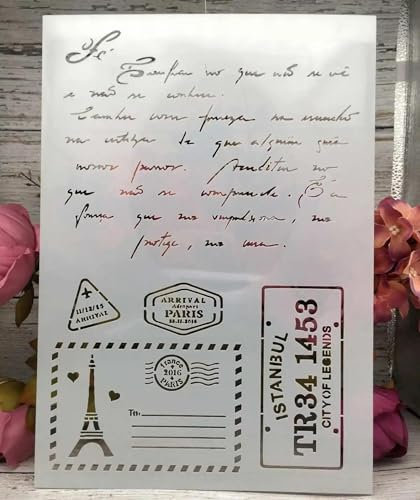 Fé
Confiar no que não se vê
e não se conhece.
Caminhar com firmeza na escuridão
na certeza de que alguém guia
nossos passos. Acreditar no
que não se compreende. É a
força que me impulsiona, me
protege, me cura.
11/12/15
ARRIVAL
ARRIVAL
Aéroport
PARIS
22.11.2016
France
2016
PARIS
To:
ISTANBUL
TR34 1453
CITY OF LEGENDS